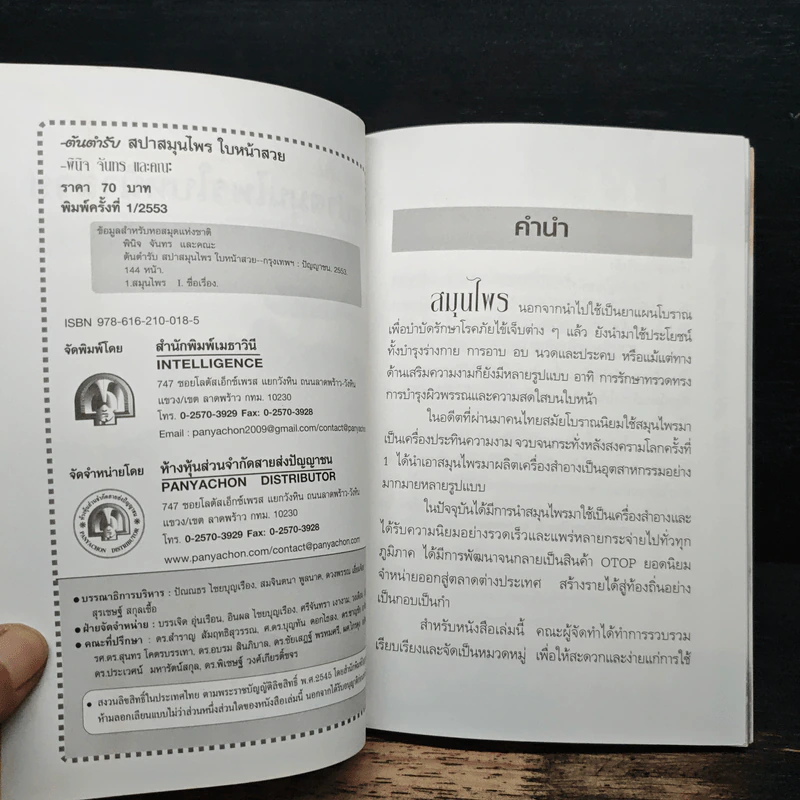 ต้นตำรับ สปาสมุนไพร ใบหน้าสวย
พินิจ จันทร และคณะ
ราคา 70 บาท
พิมพ์ครั้งที่ 1/2553
ข้อมูลสำหรับหอสมุดแห่งชาติ
พินิจ จันทร และคณะ
ต้นตำรับ สปาสมุนไพร ใบหน้าสวย--กรุงเทพฯ : ปัญญาชน, 2553
144 หน้า.
1.สมุนไพร I. ชื่อเรื่อง.
ISBN 978-616-210-018-5
จัดพิมพ์โดย
สำนักพิมพ์เมธาวินี
INTELLIGENCE
747 ซอยโลตัสเอ็กซ์เพรส แยกวังหิน ถนนลาดพร้าว-วังหิน
แขวง/เขต ลาดพร้าว กทม. 10230
โทร. 0-2570-3929 Fax: 0-2570-3928
Email : panyachon2009@gmail.com/contact@panyachon
จัดจำหน่ายโดย
ห้างหุ้นส่วนจำกัดสายส่งปัญญาชน
PANYACHON DISTRIBUTOR
747 ซอยโลตัสเอ็กซ์เพรส แยกวังหิน ถนนลาดพร้าว-วังหิน
แขวง/เขต ลาดพร้าว กทม. 10230
โทร. 0-2570-3929 Fax: 0-2570-3928
www.panyachon.com/contact@panyachon.com
บรรณาธิการบริหาร : ปัณณธร ไชยบุญเรือง, สมจินตนา พูลนาค, ดวงพรรณ
สุรเชษฐ์ สกุลเชื้อ
ฝ่ายจัดจำหน่าย : บรรเจิด อุ่นเรือน, อินผล ไชยบุญเรือง, ศรีจันทรา เงางาม,
คณะที่ปรึกษา : ดร.สำราญ สัมฤทธิสุวรรณ, ศ.ดร.บุญทัน ดอกไธสง,
รศ.ดร.สุนทร โคตรบรรเทา, ดร.อบรม สินภิบาล, ดร.ชัยเสฏฐ์ พรหมศรี,
ดร.ประเวศน์ มหารัตน์สกุล, ดร.พิเชษฐ์ วงศ์เกียรติ์ขจร
สงวนลิขสิทธิ์ในประเทศไทย ตามพระราชบัญญัติลิขสิทธิ์ พ.ศ.2545 โดยสำนักพิมพ์
ห้ามลอกเลียนแบบไม่ว่าส่วนหนึ่งส่วนใดของหนังสือเล่มนี้ นอกจากได้รับอนุญาต
คำนำ
สมุนไพร นอกจากนำไปใช้เป็นยาแผนโบราณ
เพื่อบำบัดรักษาโรคภัยไข้เจ็บต่าง ๆ แล้ว ยังนำมาใช้ประโยชน์
ทั้งบำรุงร่างกาย การอาบ อบ นวดและประคบ หรือแม้แต่ทาง
ด้านเสริมความงามก็ยังมีหลายรูปแบบ อาทิ การรักษาทรวดทรง
การบำรุงผิวพรรณและความสดใสบนใบหน้า
ในอดีตที่ผ่านมาคนไทยสมัยโบราณนิยมใช้สมุนไพรมา
เป็นเครื่องประทินความงาม จวบจนกระทั่งหลังสงครามโลกครั้งที่
1 ได้นำเอาสมุนไพรมาผลิตเครื่องสำอางเป็นอุตสาหกรรมอย่าง
มากมายหลายรูปแบบ
ในปัจจุบันได้มีการนำสมุนไพรมาใช้เป็นเครื่องสำอางและ
ได้รับความนิยมอย่างรวดเร็วและแพร่หลายกระจายไปทั่วทุก
ภูมิภาค ได้มีการพัฒนาจนกลายเป็นสินค้า OTOP ยอดนิยม
จำหน่ายออกสู่ตลาดต่างประเทศ สร้างรายได้สู่ท้องถิ่นอย่าง
เป็นกอบเป็นกำ
สำหรับหนังสือเล่มนี้ คณะผู้จัดทำได้ทำการรวบรวม
เรียบเรียงและจัดเป็นหมวดหมู่ เพื่อให้สะดวกและง่ายแก่การใช้